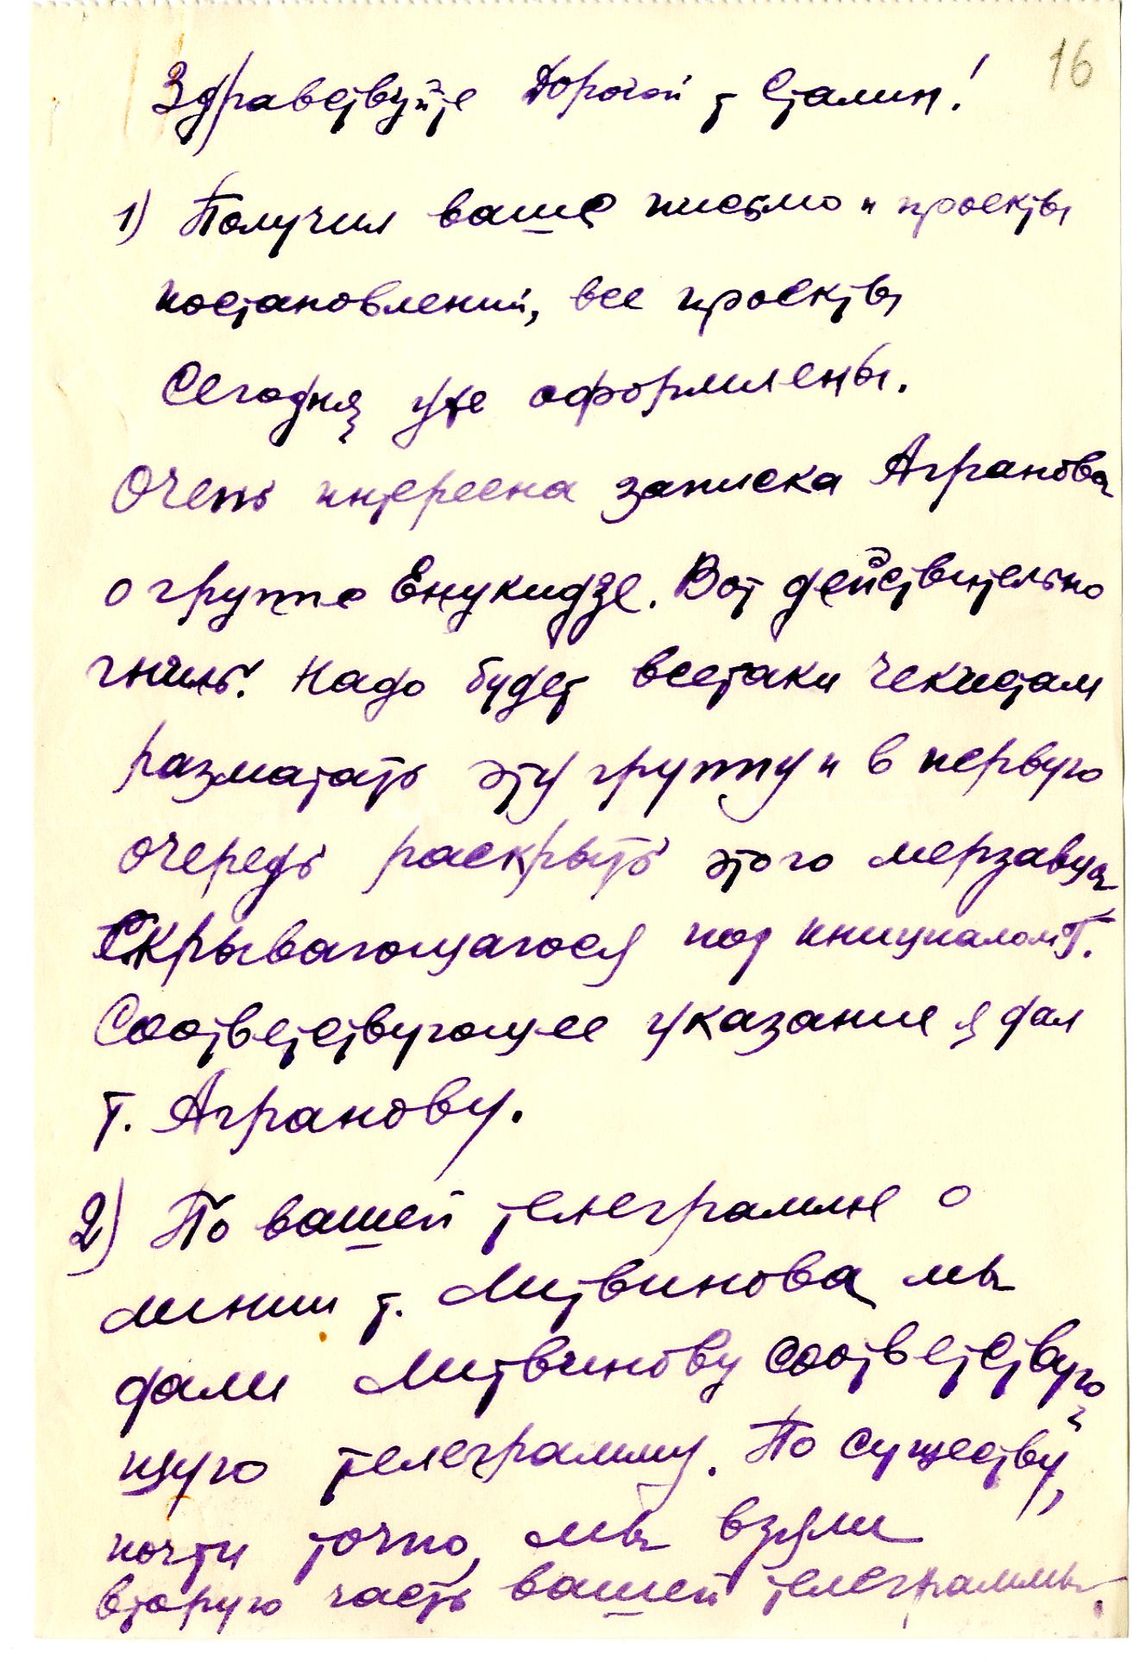 16
Здравствуйте Дорогой т Сталин!
1) Получил ваше письмо и проекты
постановлений, все проекты
Сегодня уже оформлены.
Очень интересна записка Агранова
о группе Енукидзе. Вот действительно
гниль. Надо будет всетаки чекистам
размотать эту группу и в первую
очередь раскрыть этого мерзавца
Скрывающагося под инициалом Г.
Соответствующее указание я дал
т. Агранову.
2) По вашей телеграмме о
линии т. Литвинова мы
дали Литвинову соответствую
щую телеграмму. По существу,
почти точно, мы взяли
вторую часть вашей телеграммы.